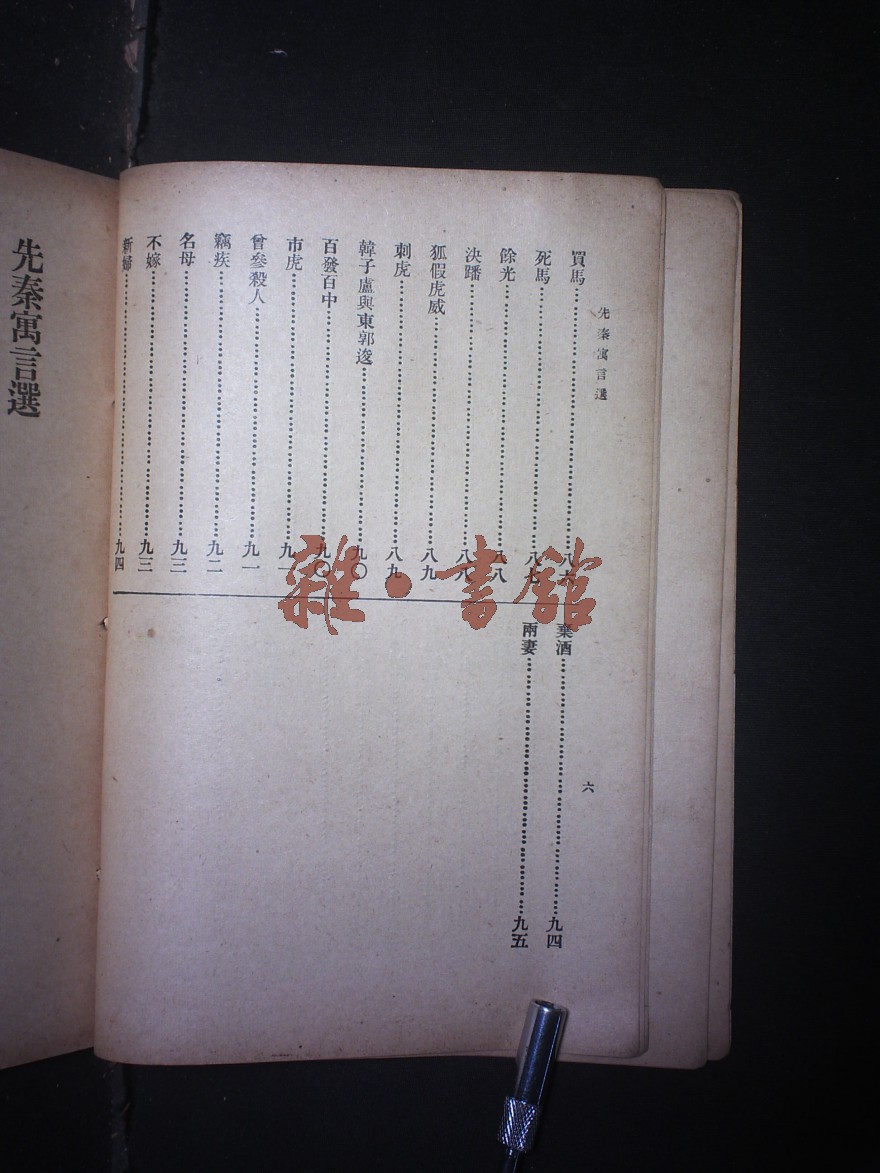 先秦寓言選
買馬……八六
死馬……八七
餘光……八八
決蹯……八八
狐假虎威……八九
刺虎……八九
韓子盧與東郭逡……九〇
百發百中……九〇
市虎……九一
曾參殺人……九一
竊疾……九二
名母……九三
不嫁……九三
新婦……九四
六
棄酒……九四
兩妻……九五
先秦寓言選
雜·書館